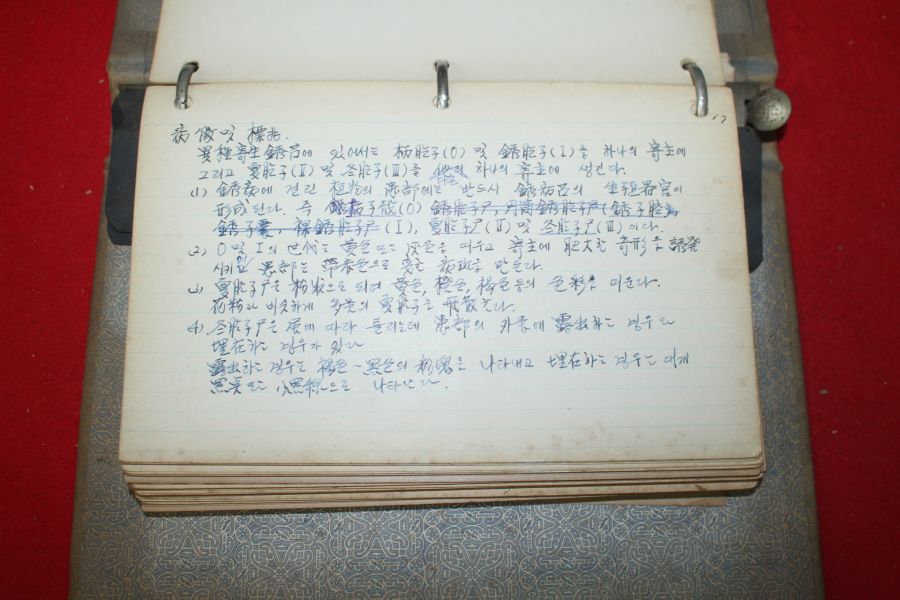 17
病徵 및 標兆.
異種寄生銹菌에 있어서는 柄胞子(O) 및 銹胞子(I)를 하나의 寄主에
그리고 夏胞子(II) 및 冬胞子(III)를 하나의 寄主에 생긴다.
(1) 銹病에 걸린 植物의 患部에는 반드시 銹病菌의 生殖器官이
形成된다. 즉 子殼(O) 銹胞子尸, 銹胞子尸(銹子腔,
銹子囊, 裸銹胞子尸 (I), 夏胞子尸(II) 및 冬胞子尸(III)이다.
2) O 및 I의 世代는 黃色 또는 灰色을 띠우고 寄主에 肥大한 奇形을 誘發
시키고 患部는 帶赤色으로 變한 病斑을 만든다.
3) 夏胞子尸은 粉狀으로 되여 黃色, 橙色, 褐色等의 色彩를 띠운다.
花粉과 비슷하게 多量의 夏胞子를 飛散한다.
4). 冬胞子尸은 屬에 따라 틀리는데 患部의 外表에 露出하는 경우와
埋在하는 경우가 있다
露出하는 경우는 褐色~黑色의 粉塊를 나타내고 埋在하는 경우는 대개
黑点 또는 小黑線으로 나타난다.